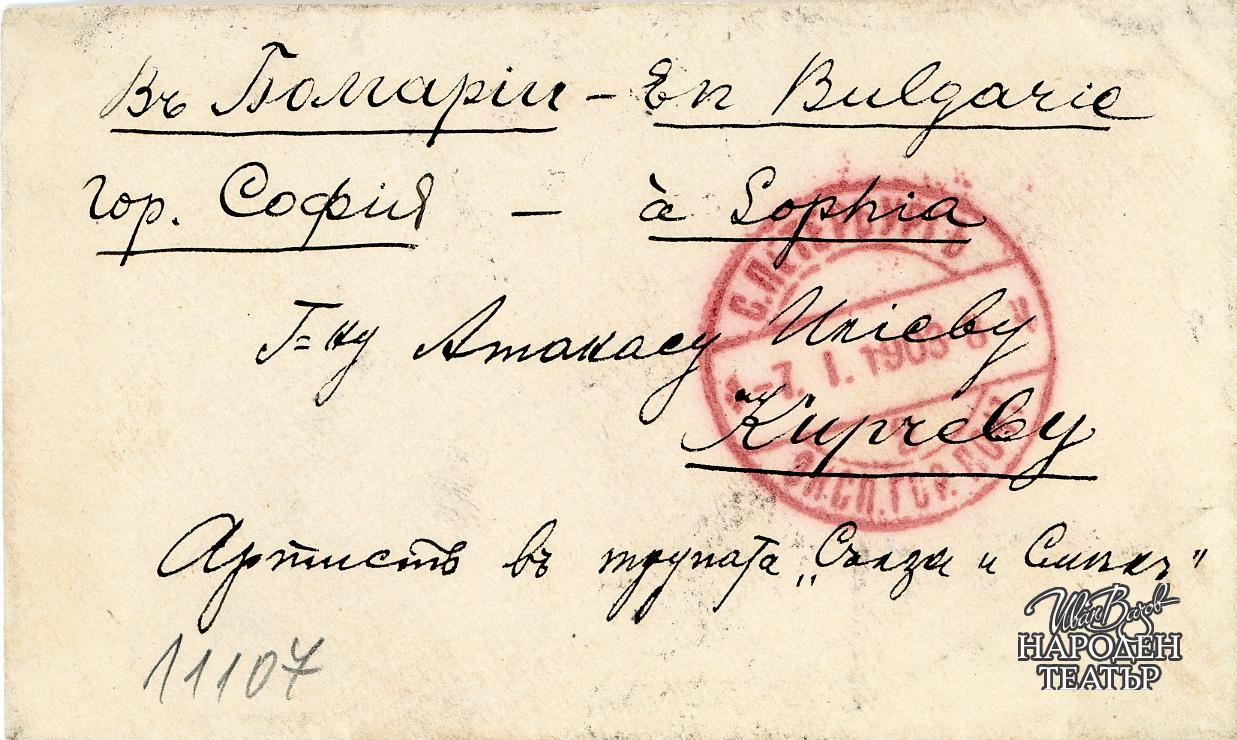 Въ Болгаріи - En Bulgarie
гор. София - à Sophia
Г=ну Атанасу Иліеву
Кирчеву
Артистъ въ трупата „Сълза и Смѣхъ"
11107
С.ПЕТЕРБУРГЪ
7. I. 1903
ЭКСП.ГОР.ПОЧ
Иван Вазов
НАРОДЕН
ТЕАТЪР